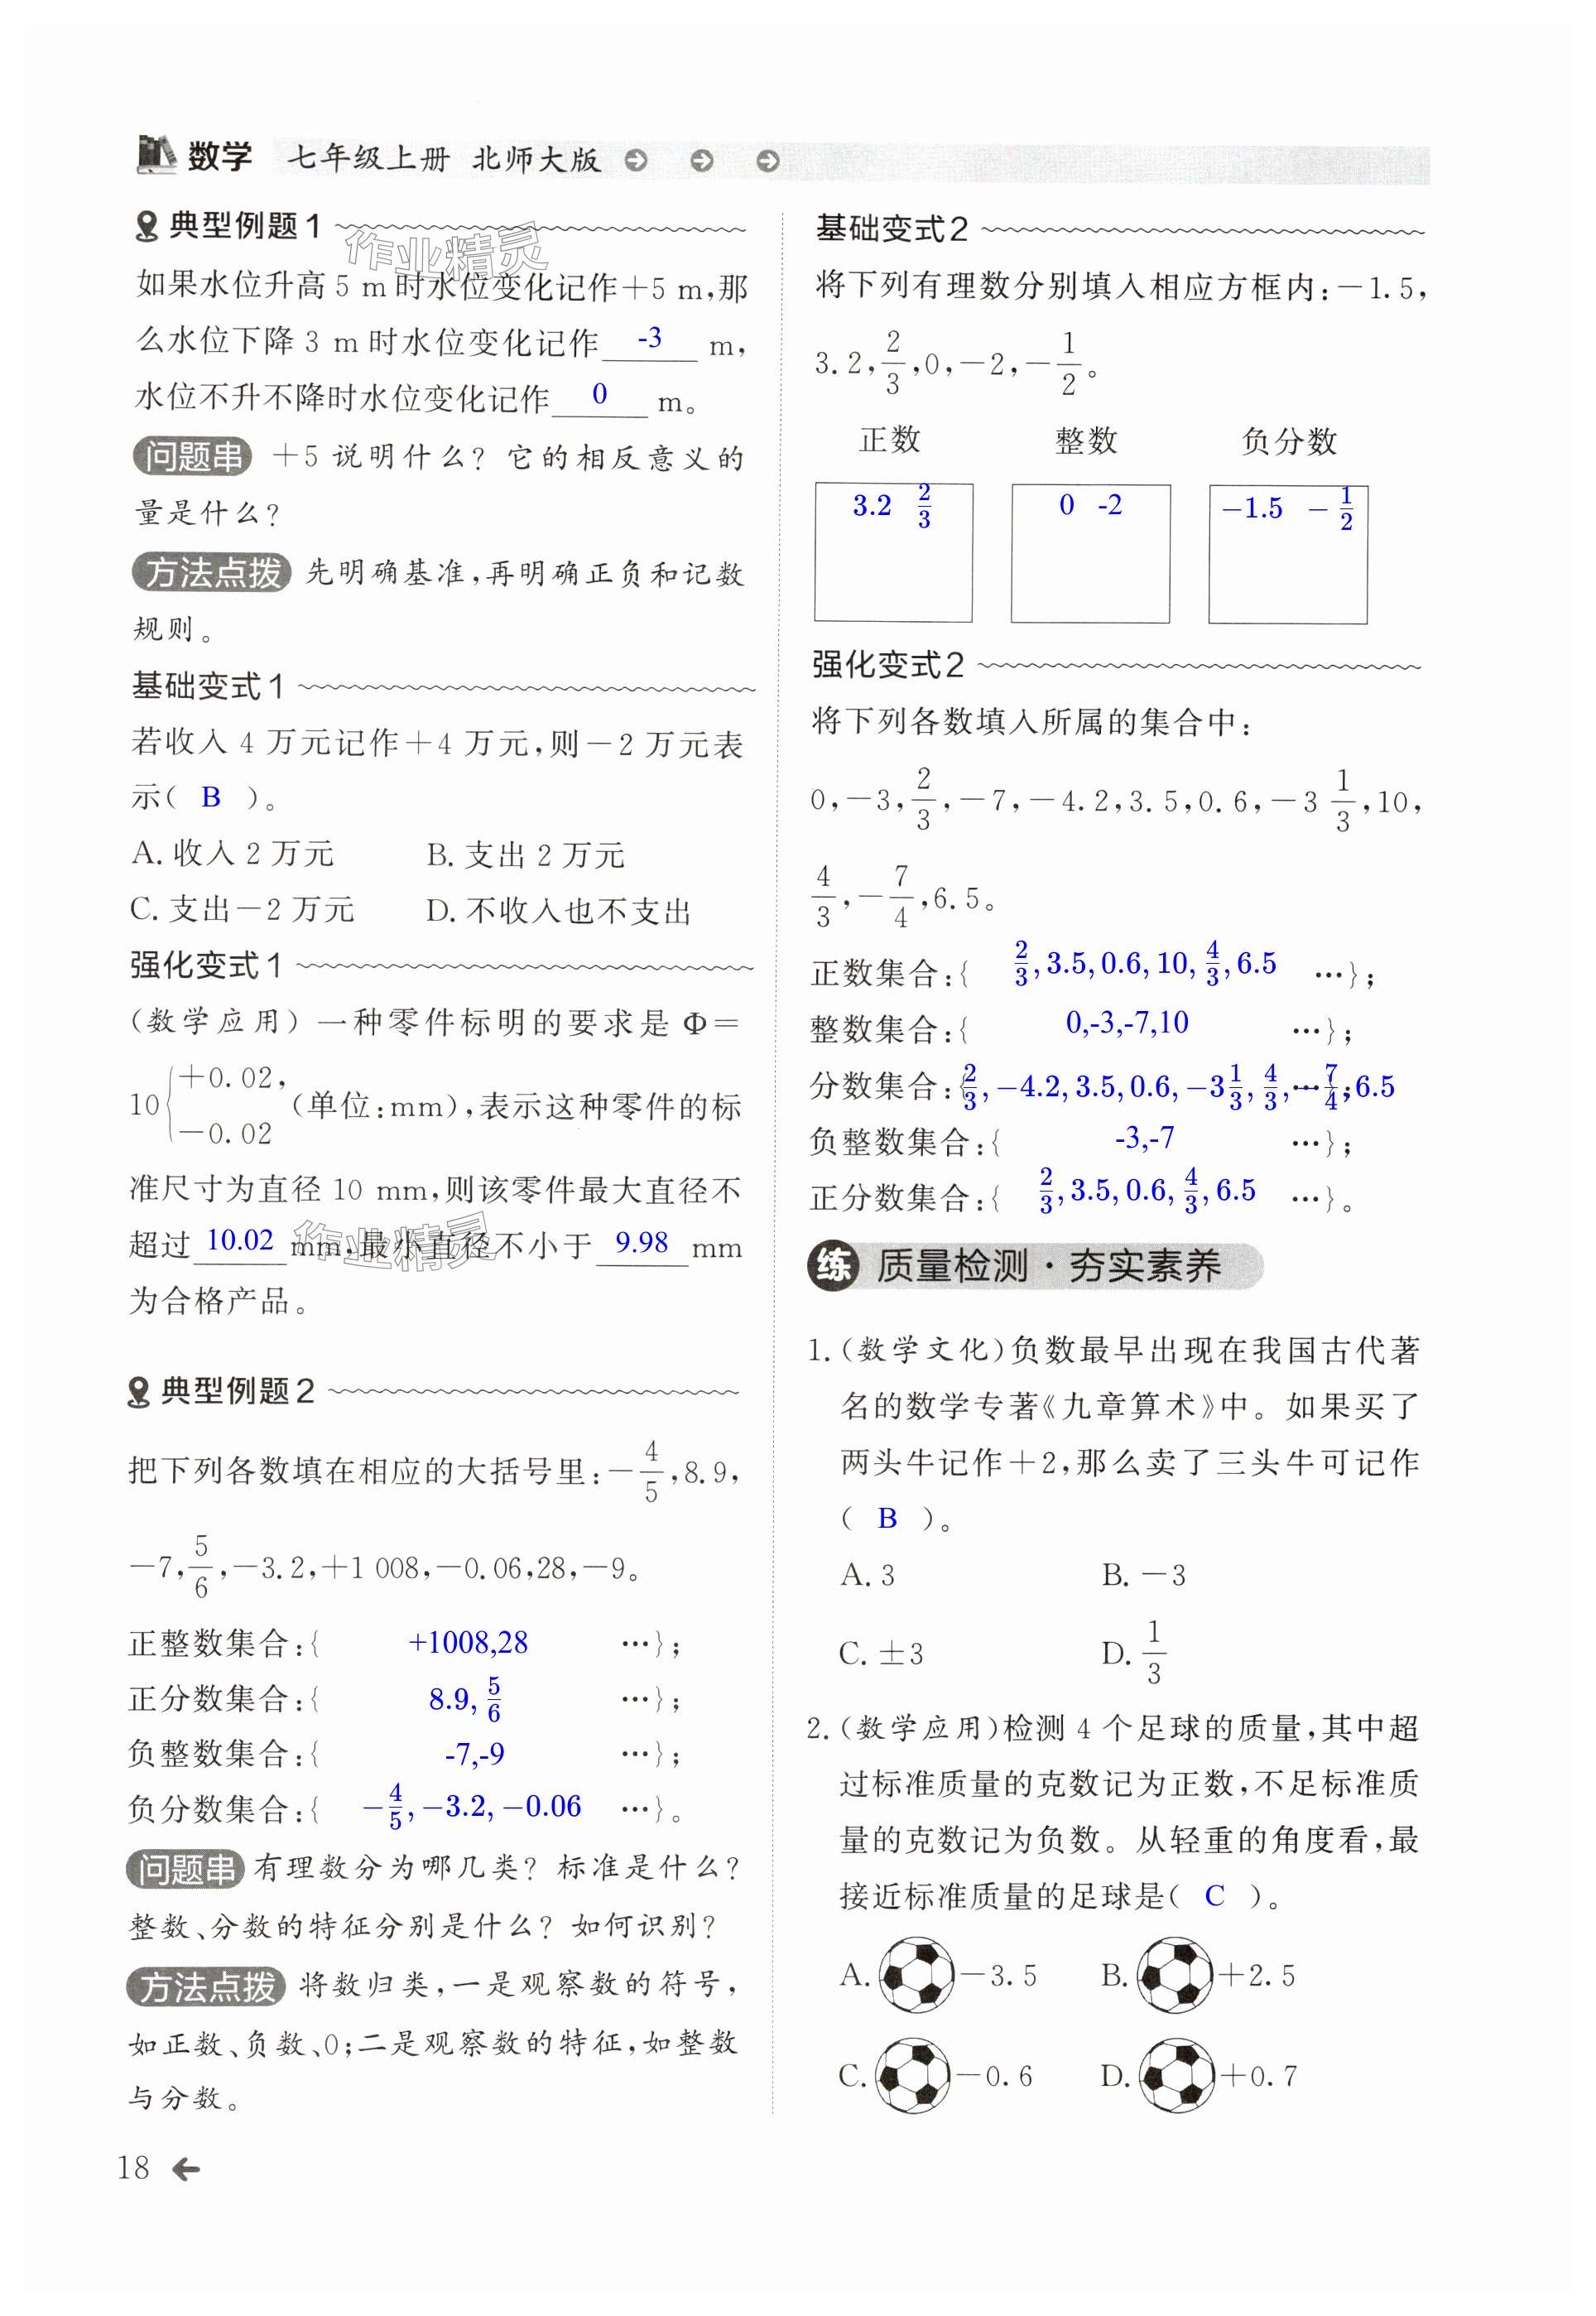 数学 七年级上册 北师大版
典型例题1
如果水位升高 5 m 时水位变化记作+5 m,那
么水位下降 3 m 时水位变化记作 -3 m,
水位不升不降时水位变化记作 0 m。
问题串 +5 说明什么? 它的相反意义的
量是什么?
方法点拨 先明确基准,再明确正负和记数
规则。
基础变式1
若收入 4 万元记作+4 万元,则-2 万元表
示( B )。
A. 收入 2 万元 B. 支出 2 万元
C. 支出-2 万元 D. 不收入也不支出
强化变式1
(数学应用) 一种零件标明的要求是 Φ=
10{+0.02, -0.02 (单位:mm),表示这种零件的标
准尺寸为直径 10 mm,则该零件最大直径不
超过 10.02 mm,最小直径不小于 9.98 mm
为合格产品。
典型例题2
把下列各数填在相应的大括号里:-4/5,8.9,
-7,5/6,-3.2,+1 008,-0.06,28,-9。
正整数集合:{ +1008,28 …};
正分数集合:{ 8.9, 5/6 …};
负整数集合:{ -7,-9 …};
负分数集合:{ -4/5, -3.2, -0.06 …}。
问题串 有理数分为哪几类? 标准是什么?
整数、分数的特征分别是什么? 如何识别?
方法点拨 将数归类,一是观察数的符号,
如正数、负数、0;二是观察数的特征,如整数
与分数。
18
基础变式2
将下列有理数分别填入相应方框内:-1.5,
3.2,2/3,0,-2,-1/2。
正数 整数 负分数
3.2 2/3 0 -2 -1.5 -1/2
强化变式2
将下列各数填入所属的集合中:
0,-3,2/3,-7,-4.2,3.5,0.6,-3 1/3,10,
4/3,-7/4,6.5。
正数集合:{ 2/3, 3.5, 0.6, 10, 4/3, 6.5 …};
整数集合:{ 0,-3,-7,10 …};
分数集合:{ 2/3, -4.2, 3.5, 0.6, -3 1/3, 4/3, -7/4, 6.5 …};
负整数集合:{ -3,-7 …};
正分数集合:{ 2/3, 3.5, 0.6, 4/3, 6.5 …}。
练 质量检测·夯实素养
1. (数学文化)负数最早出现在我国古代著
名的数学专著《九章算术》中。如果买了
两头牛记作+2,那么卖了三头牛可记作
( B )。
A. 3 B. -3
C. ±3 D. 1/3
2. (数学应用)检测 4 个足球的质量,其中超
过标准质量的克数记为正数,不足标准质
量的克数记为负数。从轻重的角度看,最
接近标准质量的足球是( C )。
A. -3.5 B. +2.5
C. -0.6 D. +0.7
作业精灵
作业精灵